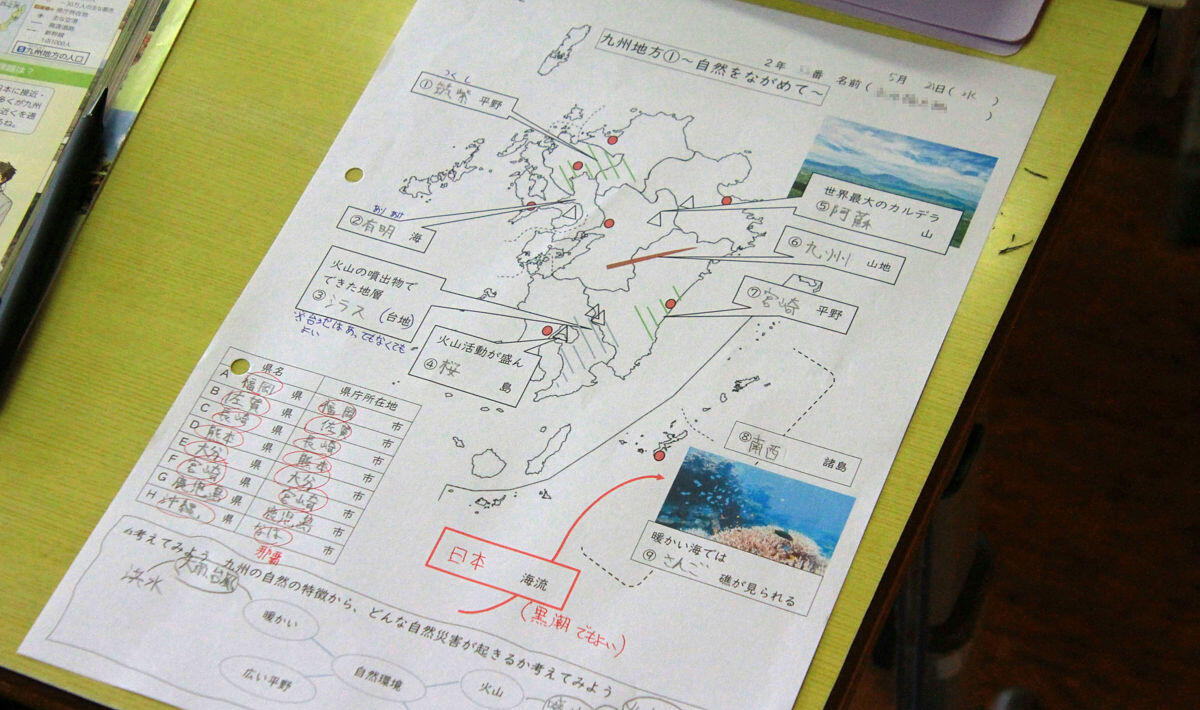 九州地方の人口
九州地方①～自然をながめて～
2年 番 名前( 5月 21日(水)
)
①筑紫 平野
つくし
②有明 海
あり あけ
火山の噴出物で
できた地層
③シラス (台地)
よい
火山活動が盛ん
④桜 島
世界最大のカルデラ
⑤阿蘇 山
⑥九州 山地
⑦宮崎 平野
⑧南西 諸島
暖かい海では
⑨さんご 礁が見られる
日本 海流
(黒潮 でもよい)
県名 県庁所在地
A 福岡 県 福岡 市
B 佐賀 県 佐賀 市
C 長崎 県 長崎 市
D 熊本 県 熊本 市
E 大分 県 大分 市
F 宮崎 県 宮崎 市
G 鹿児島 県 鹿児島 市
H 沖縄 県 なは 市
那覇
考えてみよう 九州の自然の特徴から、どんな自然災害が起きるか考えてみよう
洪水
大雨台風
暖かい
広い平野
自然環境
火山